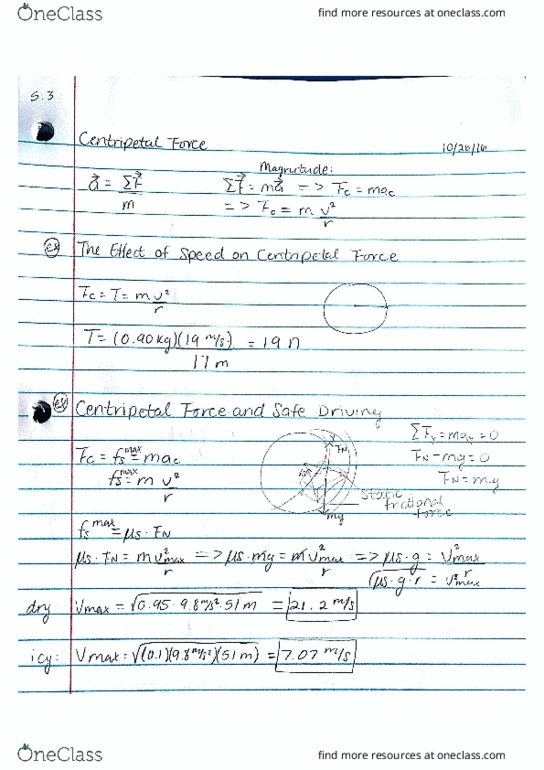 OneClass find more resources at oneclass.com
5.3
Centripetal Force 10/26/16
Magnitude:
a⃗ = ΣF⃗/m ΣF⃗ = ma⃗ => Fc = mac
=> Fc = m v²/r
ex The Effect of Speed on Centripetal Force
Fc = T = m v²/r
T = (0.90 kg)(19 m/s)/17 m = 19 N
ex Centripetal Force and Safe Driving
ΣFy = may = 0
Fc = fs^max = mac FN FN - mg = 0
fs^max = m v²/r FN = mg
mg Static frictional force
fs^max = μs · FN
μs · FN = m v²max/r => μs · mg = m v²max/r => μs · g = v²max/r
√μs · g · r = v²max
dry Vmax = √0.95 · 9.8 m/s² · 51 m = 21.2 m/s
icy: Vmax = √(0.1)(9.8 m/s²)(51 m) = 7.07 m/s
OneClass find more resources at oneclass.com